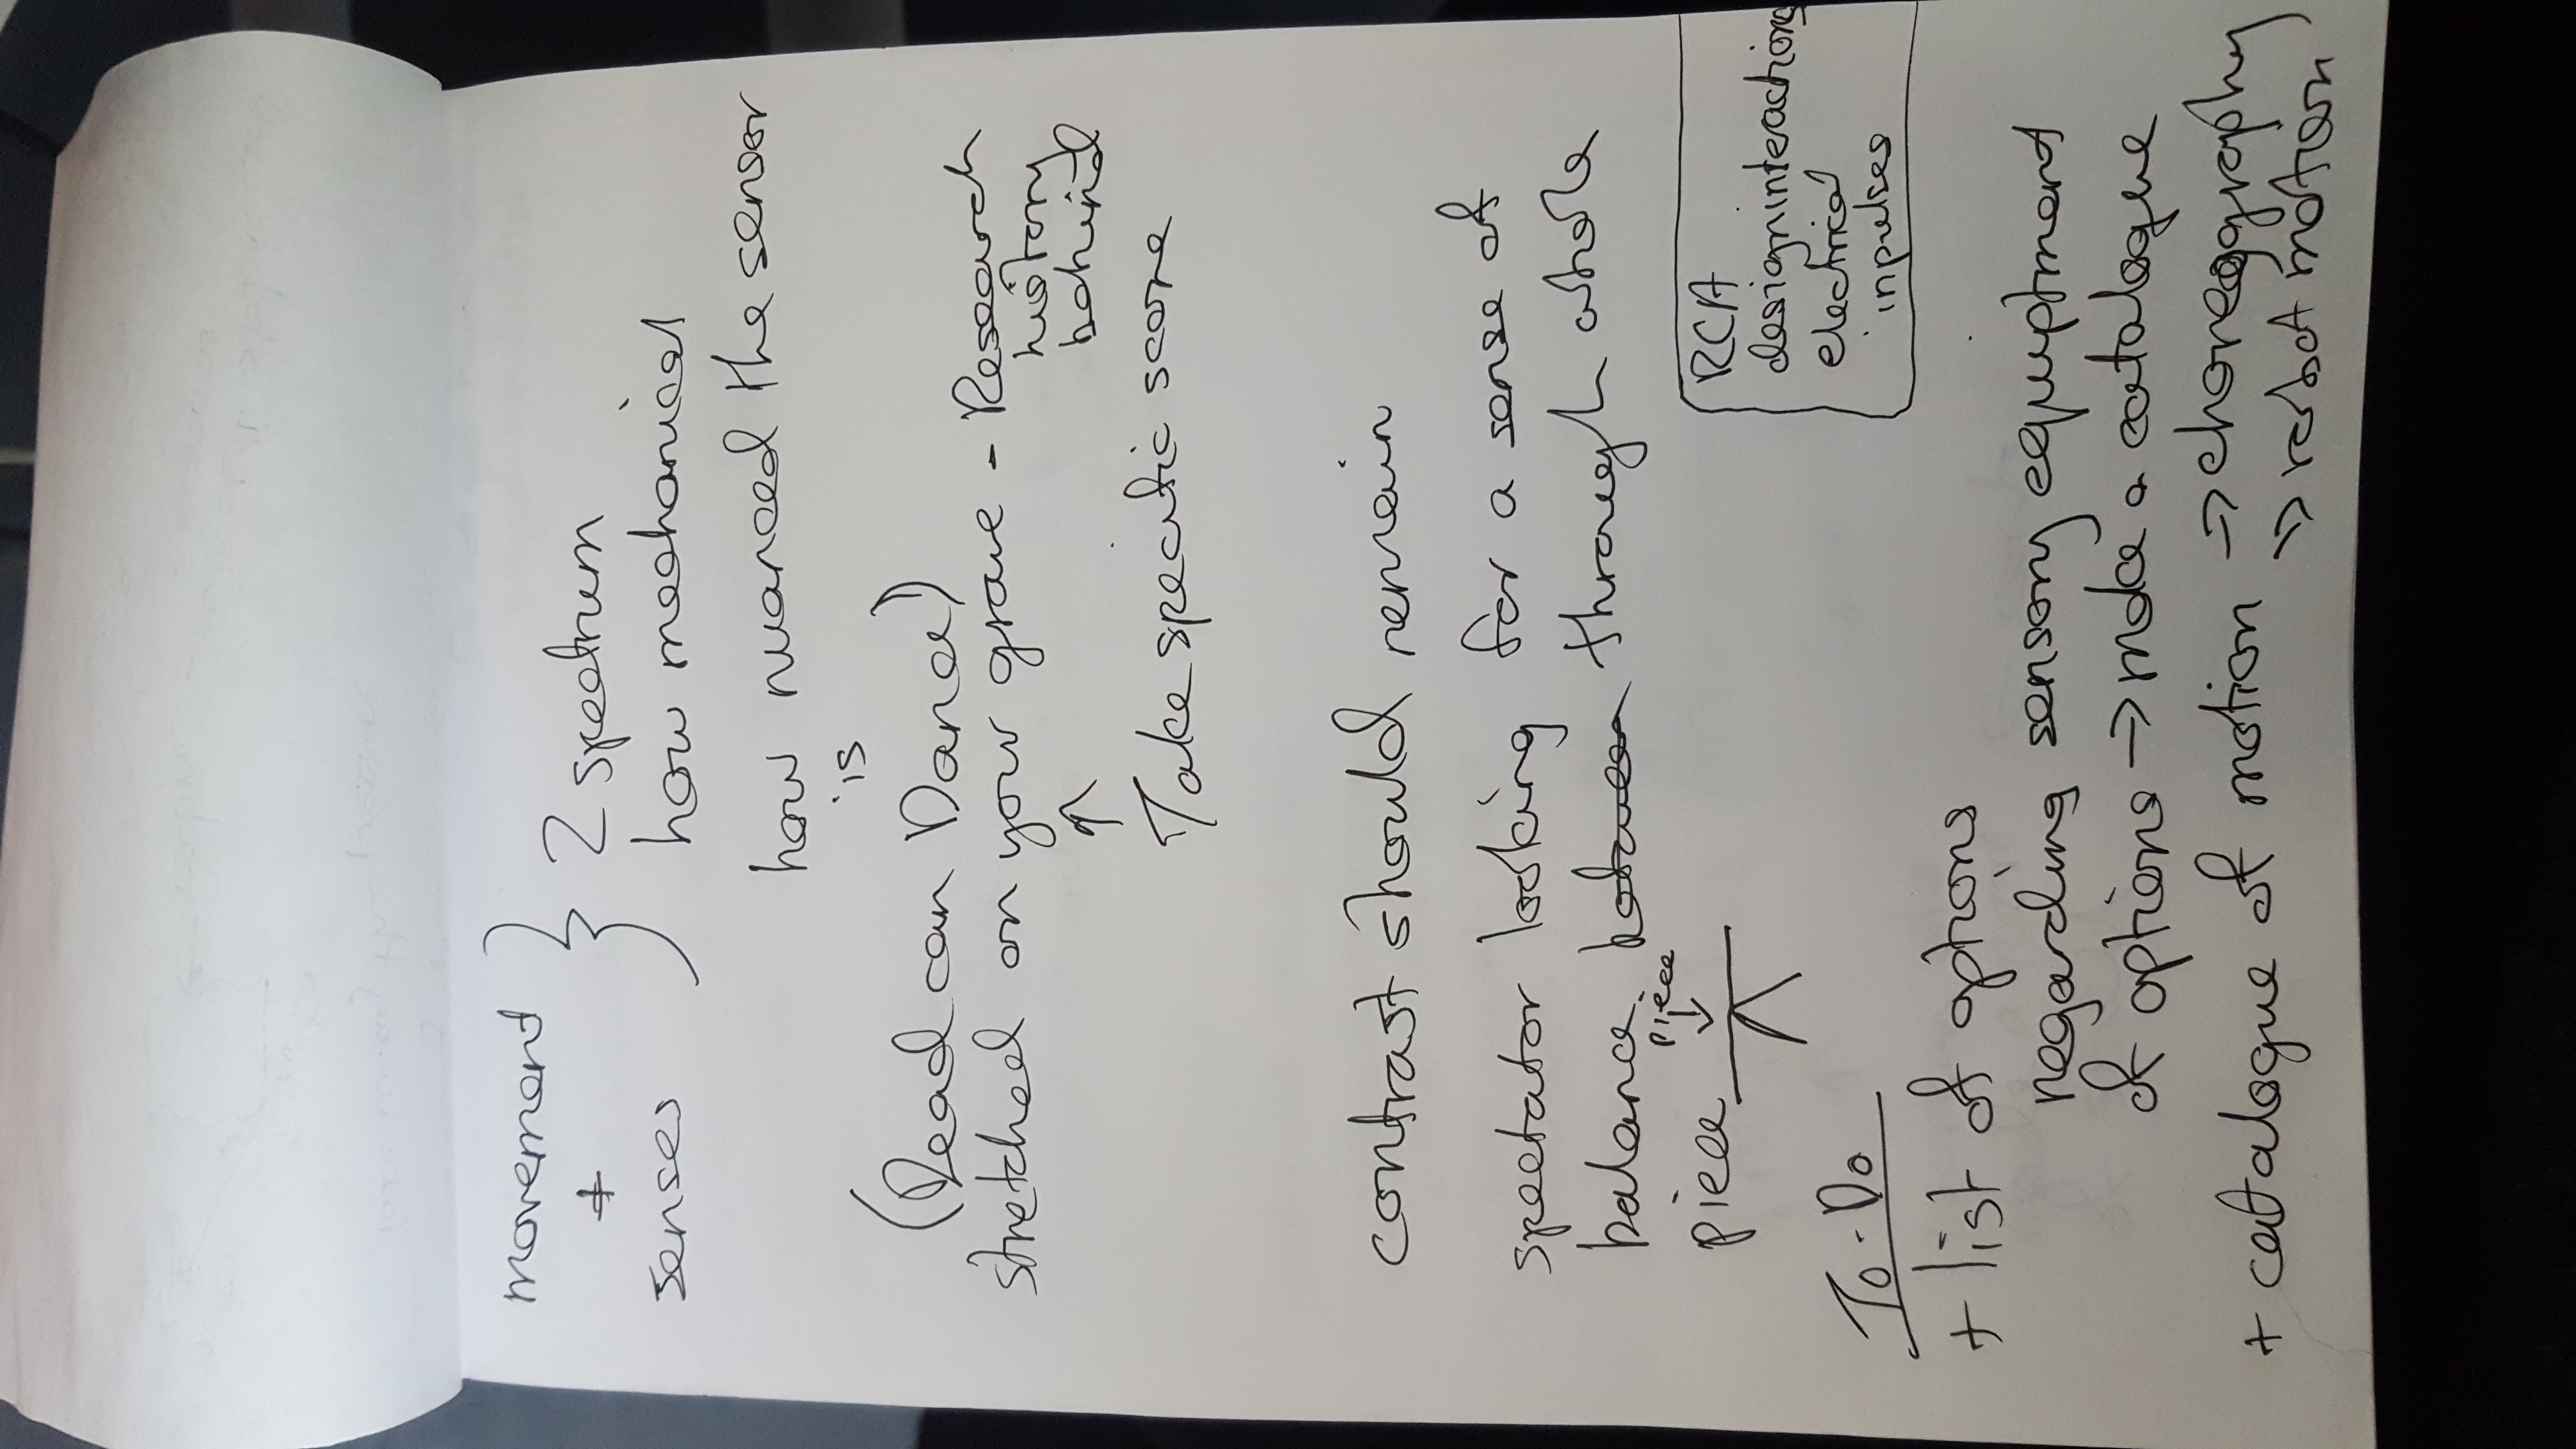 movement
+
senses
2 spectrum
how mechanical
how nuanced the sensor
is
(Dead can Dance)
stretched on your grave - Research
history
behind
↑
Take specific score
contrast should remain
spectator looking for a sense of
balance between through whole
piece
piece
RCA
designinteractions
electrical
inpulses
To-Do
+ list of options
regarding sensory equiptment
of options → make a catalogue
+ catalogue of motion → choreography
→ robot motion